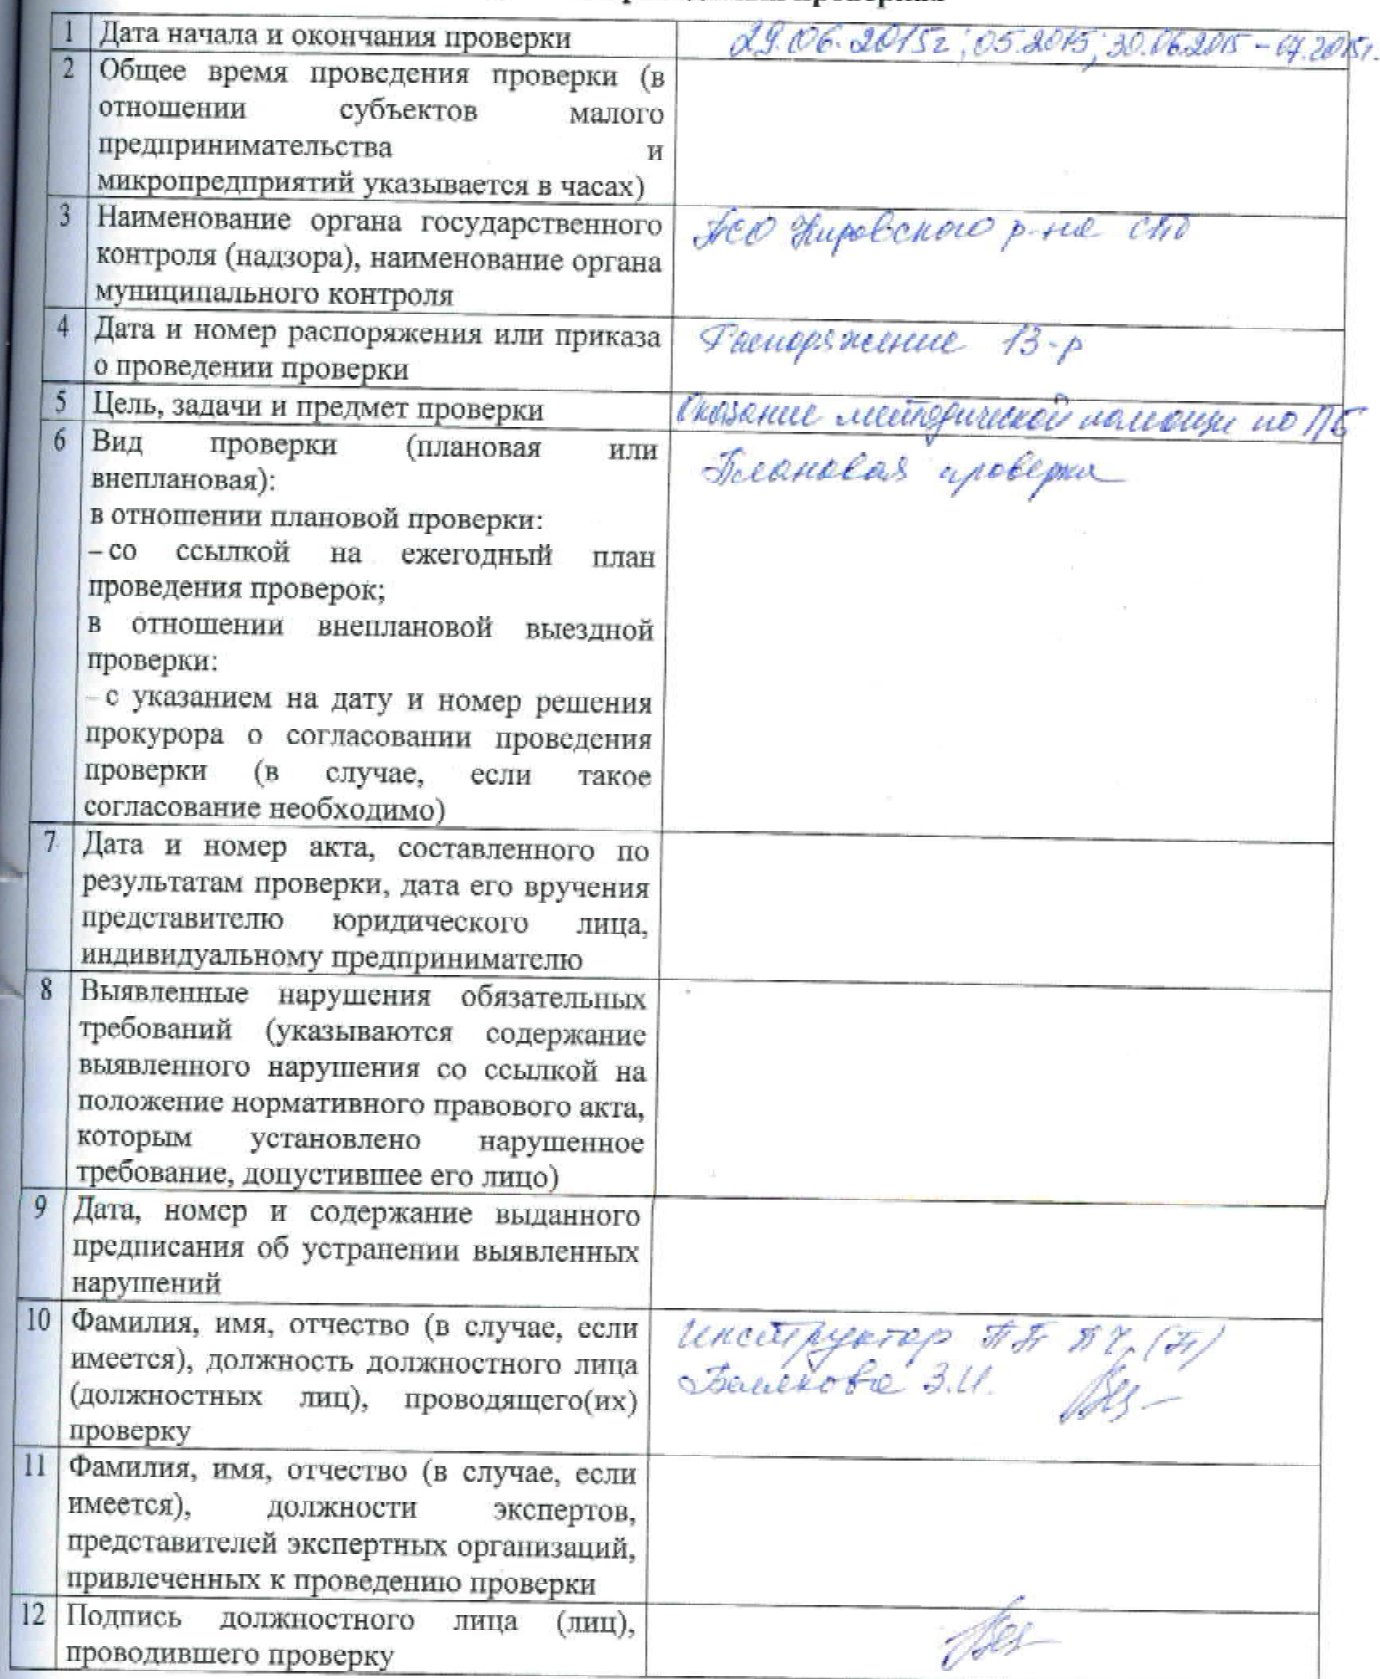 1 Дата начала и окончания проверки 29.06.2015г; 05.2015; 30.06.2015 – 07.2015г.
2 Общее время проведения проверки (в
отношении субъектов малого
предпринимательства и
микропредприятий указывается в часах)
3 Наименование органа государственного
контроля (надзора), наименование органа
муниципального контроля
ПСО Кировского р-на СПб
4 Дата и номер распоряжения или приказа
о проведении проверки
Распоряжение 13-р
5 Цель, задачи и предмет проверки Оказание методической помощи по ПБ
6 Вид проверки (плановая или
внеплановая):
в отношении плановой проверки:
– со ссылкой на ежегодный план
проведения проверок;
в отношении внеплановой выездной
проверки:
– с указанием на дату и номер решения
прокурора о согласовании проведения
проверки (в случае, если такое
согласование необходимо)
Плановая проверка
7 Дата и номер акта, составленного по
результатам проверки, дата его вручения
представителю юридического лица,
индивидуальному предпринимателю
8 Выявленные нарушения обязательных
требований (указываются содержание
выявленного нарушения со ссылкой на
положение нормативного правового акта,
которым установлено нарушенное
требование, допустившее его лицо)
9 Дата, номер и содержание выданного
предписания об устранении выявленных
нарушений
10 Фамилия, имя, отчество (в случае, если
имеется), должность должностного лица
(должностных лиц), проводящего(их)
проверку
Инструктор ПП ПЧ (П)
З.И.
11 Фамилия, имя, отчество (в случае, если
имеется), должности экспертов,
представителей экспертных организаций,
привлеченных к проведению проверки
12 Подпись должностного лица (лиц),
проводившего проверку